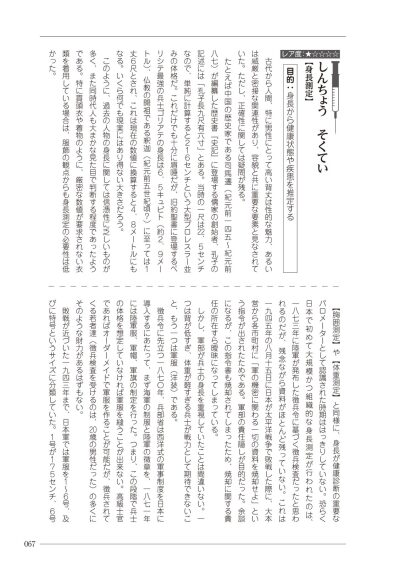 レア度:★☆☆☆☆
しんちょう そくてい
【身長測定】
目的:身長から健康状態や疾患を推定する
古代から人間、特に男性にとって高い背丈は性的な魅力、あるい
は威厳と密接な関連性があり、容貌と共に重要な要素と見なされて
いた。ただし、正確性に関しては疑問が残る。
たとえば中国の歴史家である司馬遷(紀元前一四五〜紀元前
八七)が編纂した歴史書『史記』に登場する儒家の創始者、孔子の
記述には「孔子長九尺有六寸」とある。当時の一尺は22.5センチ
なので、単純に計算すると216センチという大型プロレスラー並
みの体格だ。これだけでも十分に眉唾だが、旧約聖書に登場するペ
リシテ最強の兵士ゴリアテの身長は6.5キュビト(約2.9メー
トル)、仏教の開祖である釈迦(紀元前五世紀頃?)に至っては1
丈6尺とされ、これは現在の数値に換算すると4.8メートルにも
なる。いくら何でも現実にはあり得ない大きさだろう。
このように、過去の人物の身長に関しては信憑性に乏しいものが
多く、また同時代人も大まかな見た目で判断する程度であったよう
である。特に貫頭衣や着物のように、厳密な数値が要求されない衣
類を着用している場合は、服飾の観点からも身長測定の必要性は低
かった。
【胸囲測定】や【体重測定】と同様に、身長が健康診断の重要な
パロメーターとして認識された時期ははっきりしていない。恐らく
日本で初めて大規模かつ組織的な身長測定が行われたのは、
一八七三年に陸軍が発布した徴兵令に基づく徴兵検査だったと思わ
れるのだが、残念ながら資料がほとんど残っていない。これは
一九四五年の八月十五日に日本が太平洋戦争で敗戦した際に、大本
営から各市町村に「軍の機密に関わる一切の資料を焼却せよ」とい
う指令が出されたためである。軍部の責任隠しが目的だった。余談
になるが、この指令書も焼却されてしまったため、焼却に関する責
任の所在すら曖昧になってしまっている。
しかし、軍部が兵士の身長を重視していたことは間違いない。一
つは背が低すぎ、体重が軽すぎる兵士が戦力として期待できないこ
と、もう一つは軍服(洋装)である。
徴兵令に先立つ一八七〇年、兵部省は西洋式の軍事制度を日本に
導入するにあたって、まず海軍の制服と陸軍の徽章を、一八七一年
には陸軍服、軍帽、軍旗の制定を行った。つまり、この段階で兵士
の体格を想定していなければ軍服を縫うことが出来ない。高級士官
であればオーダーメイドで軍服を作ることが可能だが、徴兵されて
くる若者達(徴兵検査を受けるのは、20歳の男性だった)の多くに
そのような財力があるはずもない。
敗戦が近づいた一九四三年まで、日本軍では軍服を1〜6号、及
びに特号というサイズに分類していた。1号が175センチ、6号
067